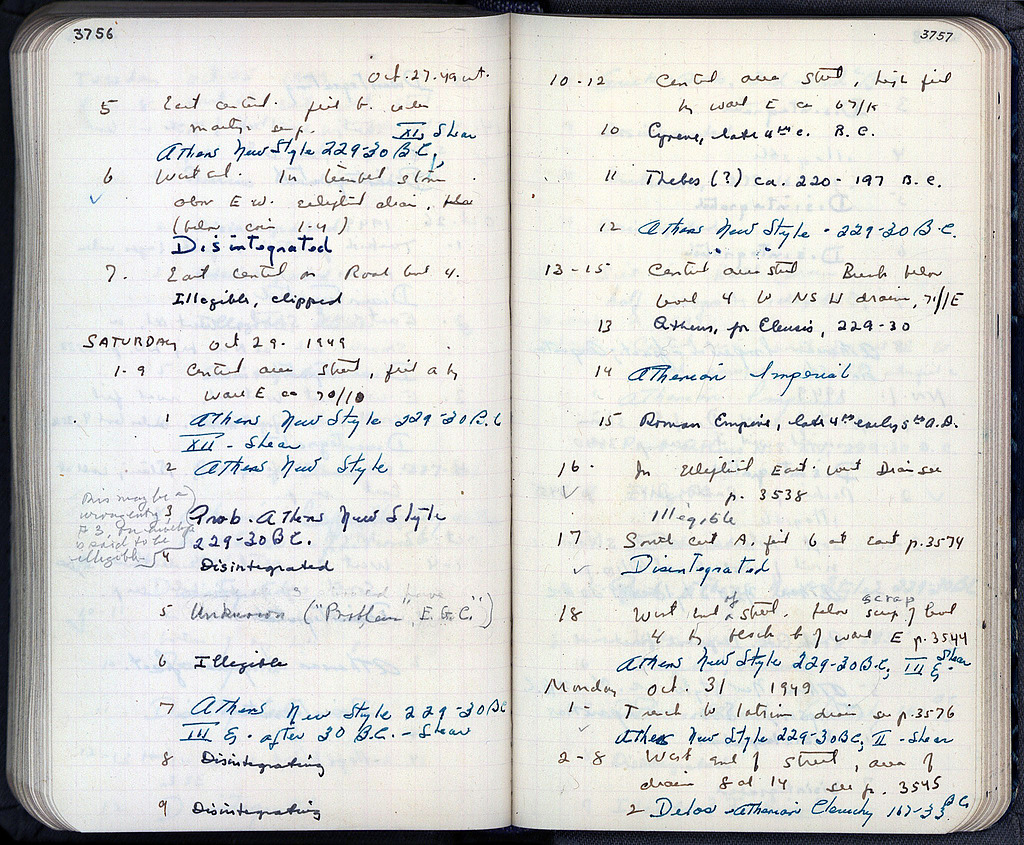 3756
Oct. 27. 49 cont.
5 East central. fill b. under
martyr. see p. XI, Shear
Athens New Style 229-30 B.C.,
6 West cut. In
above E W. drain,
(below coin 1-4)
Disintegrated
7. East central on Road level 4.
Illegible, clipped
SATURDAY Oct 29. 1949
1-9 Central area Street, fill a by
wall E ca 70/10
1 Athens New Style 229-30 B.C.
XII - Shear
2 Athens New Style
This may be a
wrong entry
# 3, for
is said to be
illegible.
3 Prob. Athens New Style
229-30 B.C.
4 Disintegrated
5 Unknown ("Problem", E.G.C.")
6 Illegible
7 Athens New Style 229-30 BC
III . after 30 B.C. - Shear
8 Disintegrating
9 Disintegrating
3757
10-12 Central area Street, high fill
by wall E ca. 67/
10 Cyrene, late 4th c. B.C.
11 Thebes (?) ca. 220-197 B.C.
12 Athens New Style - 229-30 B.C.
13-15 Central area street below
level 4 W NS W drain, 71/IE
13 Athens, for Eleusis, 229-30
14 Athenian Imperial
15 Roman Empire, late 4th early 5th A.D.
16. In East-West Drain see
p. 3538
Illegible
17 South cut A, fill b at east p. 3574
Disintegrated
18 West end of street. below scrap of level
4 by of wall E p. 3544
Athens New Style 229-30 B.C., III Shear
Monday Oct 31 1949
1- Trench by latrine drain see p. 3576
Athens New Style 229-30 BC, II - Shear
2-8 West end of street, area of
drain 8 at 14 see p. 3545
2 Delos - Athenian Cleruchy 167-33 B.C.